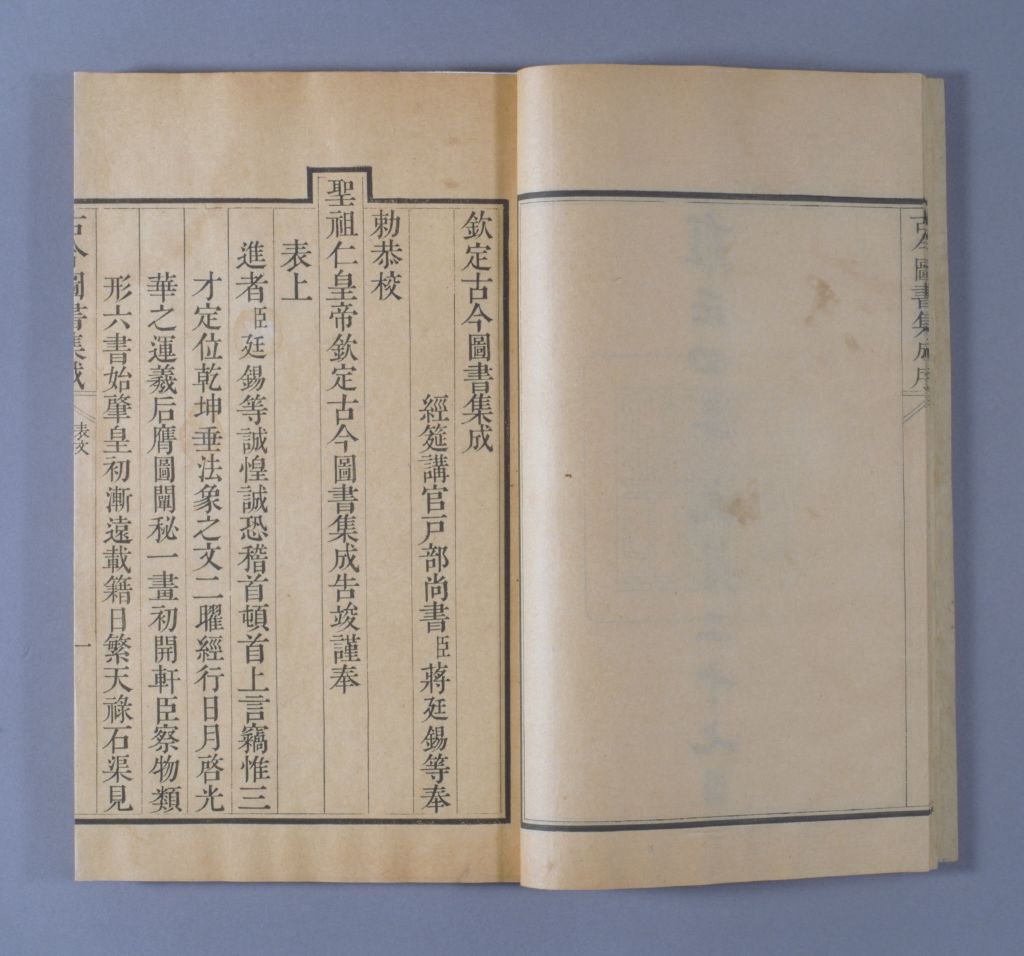 古今圖書集成序
欽定古今圖書集成
經筵講官戶部尚書臣蔣廷錫等奉
勅恭校
聖祖仁皇帝欽定古今圖書集成告竣謹奉
表上
進者臣廷錫等誠惶誠恐稽首頓首上言竊惟三
才定位乾坤垂法象之文二曜經行日月啓光
華之運羲后膺圖闡秘一畫初開軒臣察物類
形六書始肇皇初漸遠載籍日繁天祿石渠見
古今圖書集成 表文 一